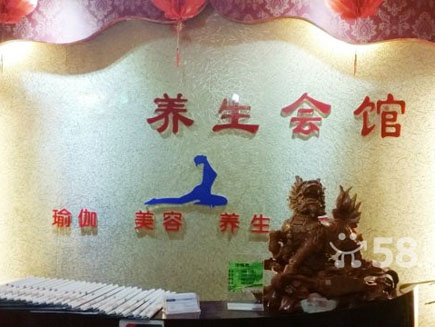 养生会馆
瑜伽 美容 养生
58